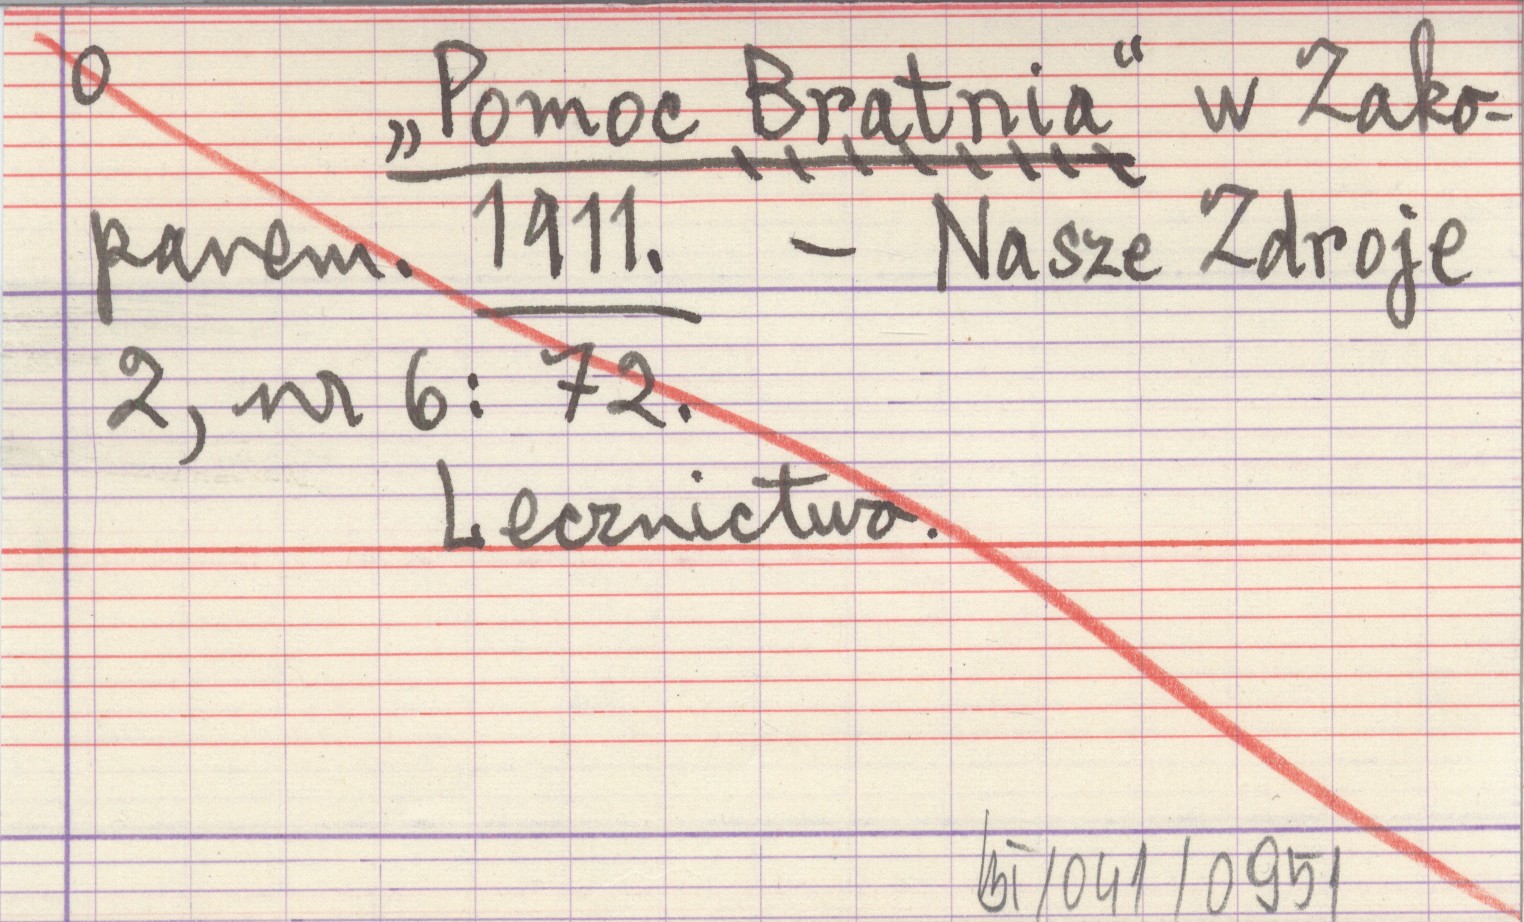 0 „Pomoc Bratnia“ w Zako-
panem. 1911. – Nasze Zdroje
2, nr 6: 72.
Lecznictwo.
bi/041/0951